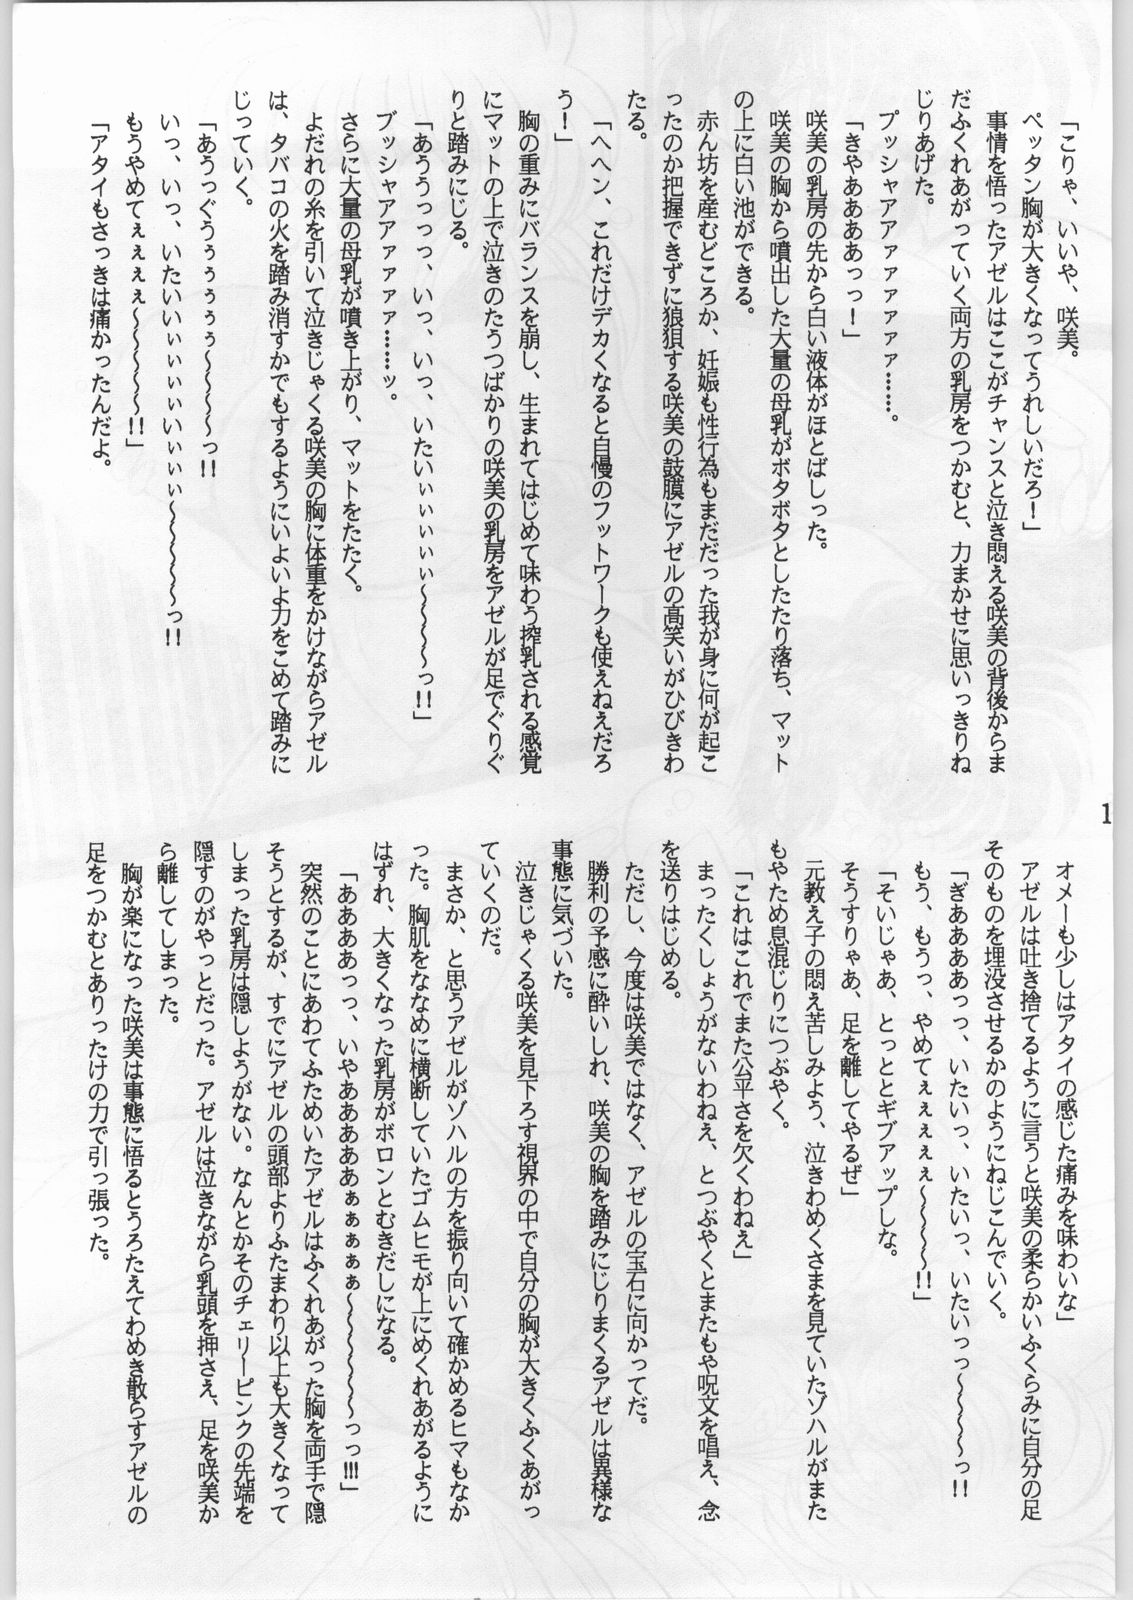 「こりゃ、いいや、咲美。
ペッタン胸が大きくなってうれしいだろ！」
事情を悟ったアゼルはここがチャンスと泣き悶える咲美の背後からま
だふくれあがっていく両方の乳房をつかむと、力まかせに思いっきりね
じりあげた。
プッシャアアァァァァァァ……。
「きゃああああっっ！」
咲美の乳房の先から白い液体がほとばしった。
咲美の胸から噴出した大量の母乳がボタボタとしたたり落ち、マット
の上に白い池ができる。
赤ん坊を産むどころか、妊娠も性行為もまだだった我が身に何が起こ
ったのか把握できずに狼狽する咲美の鼓膜にアゼルの高笑いがひびきわ
たる。
「へヘン、これだけデカくなると自慢のフットワークも使えねえだろ
う！」
胸の重みにバランスを崩し、生まれてはじめて味わう搾乳される感覚
にマットの上で泣きのたうつばかりの咲美の乳房をアゼルが足でぐりぐ
りと踏みにじる。
「あううっっっ、いっ、いっ、いたいぃぃぃぃぃ～～～～っ!!」
ブッシャアアァァァァ……ッ。
さらに大量の母乳が噴き上がり、マットをたたく。
よだれの糸を引いて泣きじゃくる咲美の胸に体重をかけながらアゼル
は、タバコの火を踏み消すかでもするようにいよいよ力をこめて踏みに
じっていく。
「あうっぐうぅぅぅぅぅ～～～～っ!!
いっ、いっ、いたいいぃぃぃぃいぃぃぃぃ～～～～～っ!!
もうやめてぇぇぇぇ～～～～～!!」
「アタイもさっきは痛かったんだよ。
オメーも少しはアタイの感じた痛みを味わいな」
アゼルは吐き捨てるように言うと咲美の柔らかいふくらみに自分の足
そのものを埋没させるかのようにねじこんでいく。
「ぎああああっっ、いたいっ、いたいっ、いたいっっ～～～～～っ!!
もう、もうっ、やめてぇぇぇぇぇ～～～～!!」
「そいじゃあ、とっととギブアップしな。
そうすりゃあ、足を離してやるぜ」
元教え子の悶え苦しみよう、泣きわめくさまを見ていたゾハルがまた
もやため息混じりにつぶやく。
「これはこれでまた公平さを欠くわねえ」
まったくしょうがないわねえ、とつぶやくとまたもや呪文を唱え、念
を送りはじめる。
ただし、今度は咲美ではなく、アゼルの宝石に向かってだ。
勝利の予感に酔いしれ、咲美の胸を踏みにじりまくるアゼルは異様な
事態に気づいた。
泣きじゃくる咲美を見下ろす視界の中で自分の胸が大きくふくあがっ
ていくのだ。
まさか、と思うアゼルがゾハルの方を振り向いて確かめるヒマもなか
った。胸肌をななめに横断していたゴムヒモが上にめくれあがるように
はずれ、大きくなった乳房がボロンとむきだしになる。
「ああああっっ、いやああああああぁぁぁぁぁ～～～～～っっ!!!」
突然のことにあわてふためいたアゼルはふくれあがった胸を両手で隠
そうとするが、すでにアゼルの頭部よりふたまわり以上も大きくなって
しまった乳房は隠しようがない。なんとかそのチェリーピンクの先端を
隠すのがやっとだった。アゼルは泣きながら乳頭を押さえ、足を咲美か
ら離してしまった。
胸が楽になった咲美は事態に悟るとうろたえてわめき散らすアゼルの
足をつかむとありったけの力で引っ張った。
1